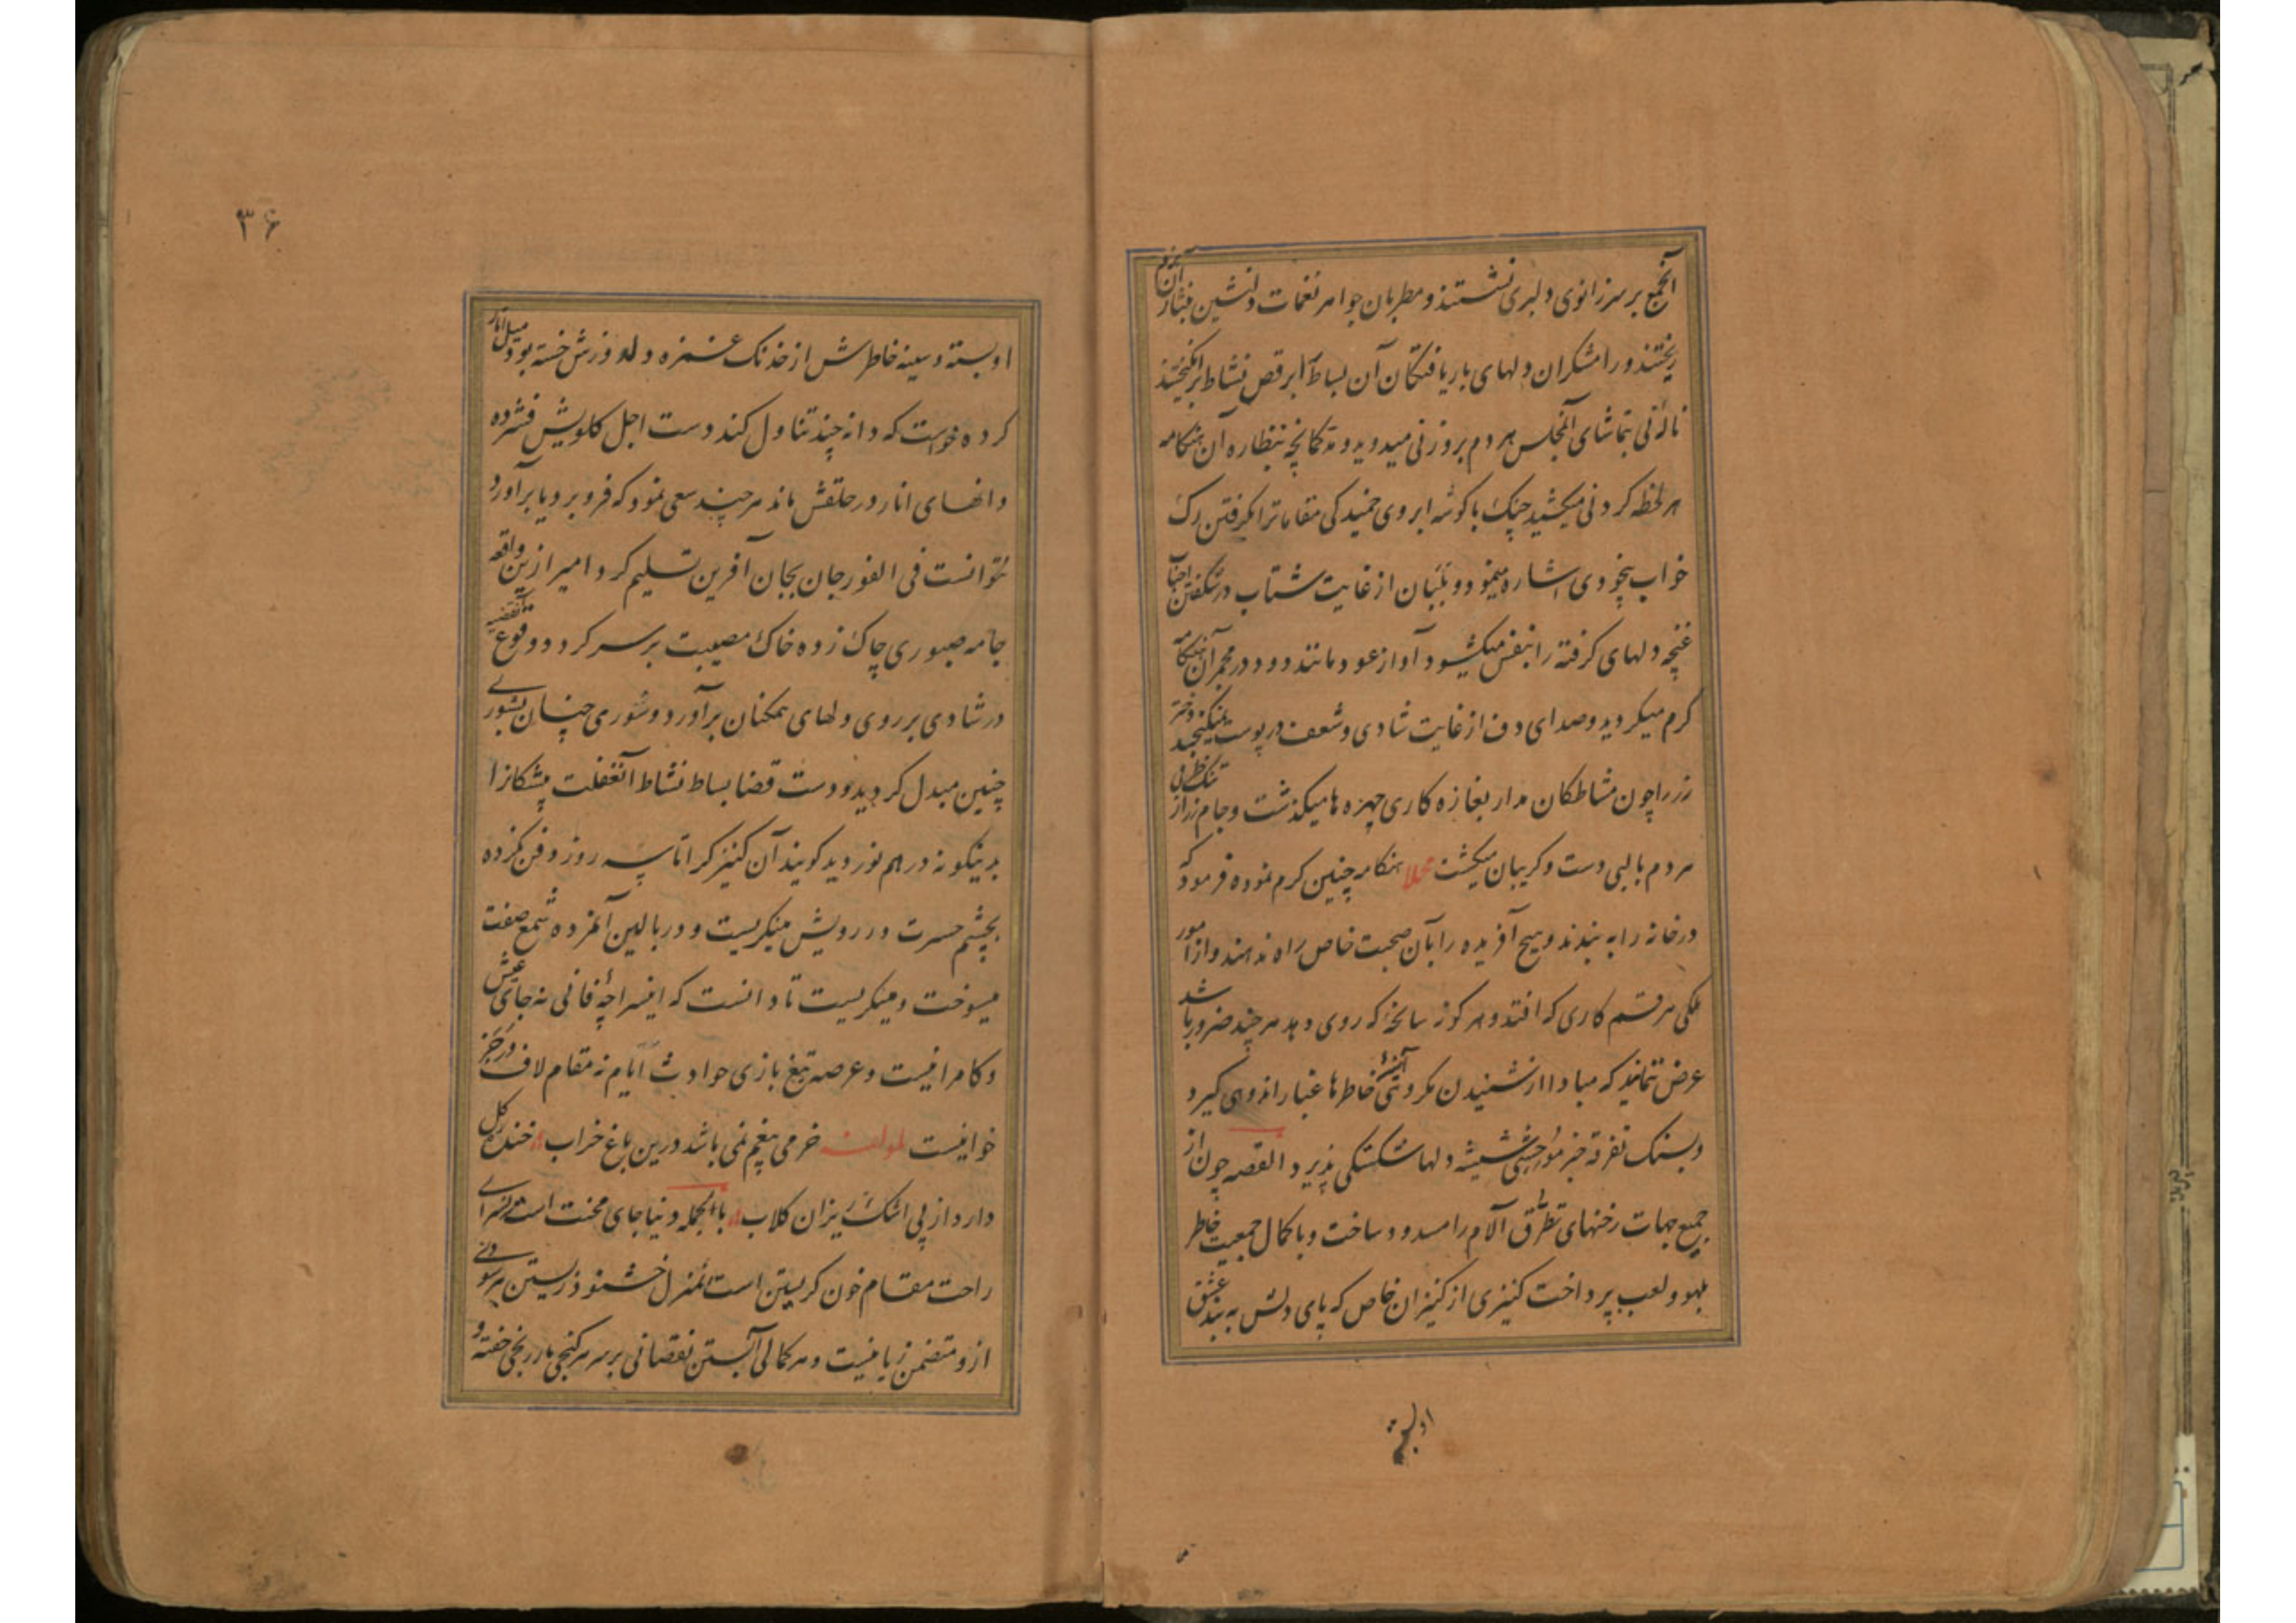 آنجمع بر سر زانوی دلبری نشستند و مطربان جواهر نغمات دلنشین نثار آن بزم
ریختند و رامشکران دلهای باریافتگان آن بساط را برقص نشاط برانگیختند
نالهٔ نی بتماشای آنمجلس هر دم بروزنی میدوید و مد کمانچه بنظاره آن هنگامه
هر لحظه کردنی میکشید چنگ با گوشه ابروی خمیدگی مقاماترا بگرفتن رگ
خواب بیخودی اشاره مینمود و بلبان از غایت شتاب در شگفتن
غنچه دلهای گرفته را بنفس میکشود آواز عود مانند دود در مجمر آن هنگامه
گرم میگردید و صدای دف از غایت شادی و شعف در پوست نمیگنجید دختر
رز را چون مشاطگان مدار بغازه کاری چهره ها میگذشت و جام زر از تنک ظرفی
هر دم بالبی دست و گریبان میگشت مجملا هنگامه چنین گرم نموده فرمود که
در خانه را به بندند و هیچ آفریده را بآن صحبت خاص راه ندهند و از امور
ملکی هر قسم کاری که افتد و هر گونه سانحهٔ که روی دهد هر چند ضرور باشد
عرض ننمایند که مبادا از شنیدن مکروهی آئینهٔ خاطرها غبار اندوهی گیرد
و بسنگ تفرقه خبر موحشی شیشه دلها شکستگی پذیرد القصه چون از
جمیع جهات رخنهای تطرق آلام را مسدود ساخت و با کمال جمعیت خاطر
بلهو و لعب پرداخت کنیزی از کنیزان خاص که پای دلش به بند عشق
او بسته
۳۶
او بسته و سینه خاطرش از خدنک غمزه دلدوزش خسته بود میل انار
کرده خواست که دانه چند تناول کند دست اجل گلویش فشرده
دانهای انار در حلقش ماند هر چند سعی نمود که فرو برد یا برآورد
نتوانست فی الفور جان بجان آفرین تسلیم کرد امیر ازین واقعه
جامه صبوری چاک زده خاک مصیبت بر سر کرد و وقوع آنقضیه
در شادی بر روی دلهای همگنان برآورد و شوری چنان بشوری
چنین مبدل گردید و دست قضا بساط نشاط آنغفلت پیشگانرا
بدینگونه در هم نوردید گویند آن کنیزک را تا سه روز دفن نکرده
بچشم حسرت در رویش مینگریست و در بالین آنمرده شمع صفت
میسوخت و میگریست تا دانست که این سراچهٔ فانی نه جای عیش
و کامرانیست و عرصه تیغ بازی حوادث ایام نه مقام لاف و رجز
خوانیست لمولفه خرمی بیغم نمی باشد درین باغ خراب خنده گل
دارد از پی اشک ریزان گلاب بالجمله دنیا جای محنت است نه سرای
راحت مقام خون گریستن است نه منزل خشنود زیستن هر سودی
ازو متضمن زیانیست و هر کمالی آبستن نقصانی بر سر هر گنجی مار رنجی خفته و